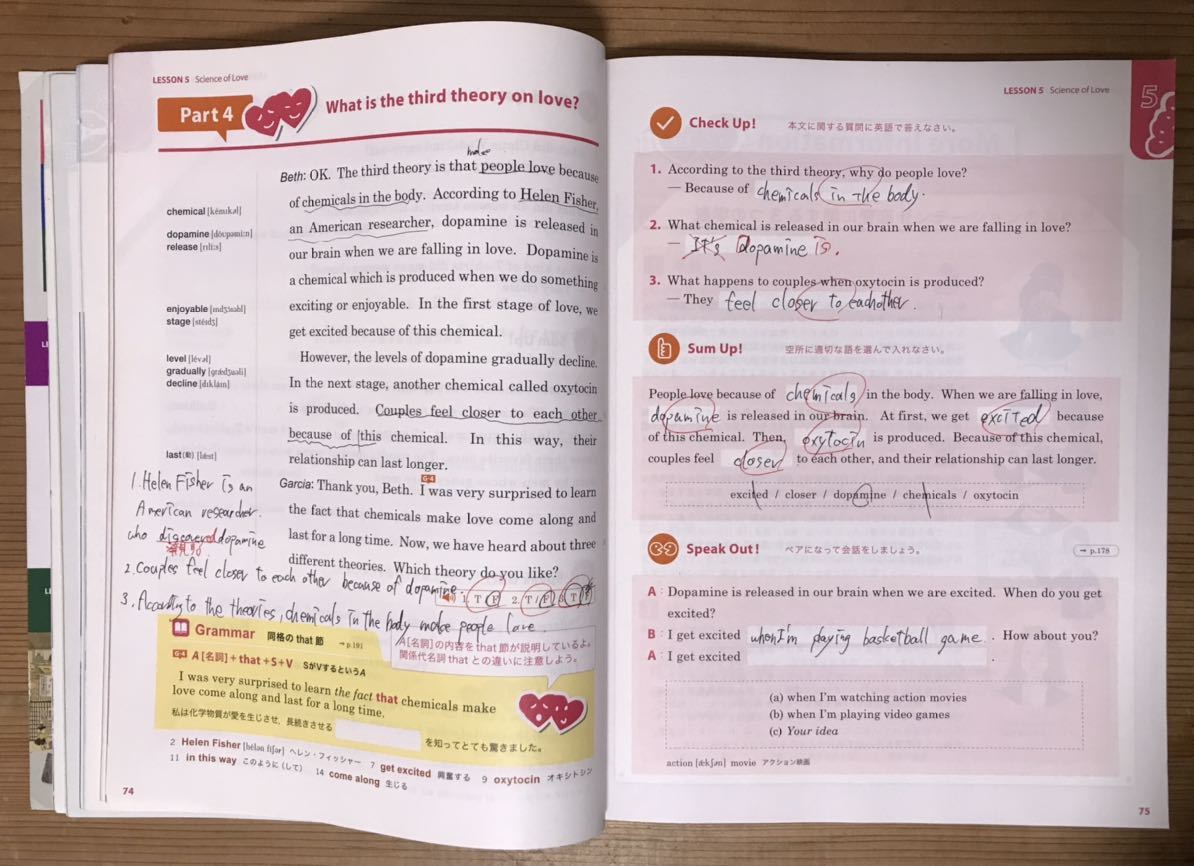 LESSON 5 Science of Love
Part 4
What is the third theory on love?
make
Beth: OK. The third theory is that people love because
of chemicals in the body. According to Helen Fisher,
an American researcher, dopamine is released in
our brain when we are falling in love. Dopamine is
a chemical which is produced when we do something
exciting or enjoyable. In the first stage of love, we
get excited because of this chemical.
However, the levels of dopamine gradually decline.
In the next stage, another chemical called oxytocin
is produced. Couples feel closer to each other
because of this chemical. In this way, their
relationship can last longer.
Garcia: Thank you, Beth. I was very surprised to learn
the fact that chemicals make love come along and
last for a long time. Now, we have heard about three
different theories. Which theory do you like?
chemical [kémɪkəl]
dopamine [dóʊpəmìːn]
release [rɪlíːs]
enjoyable [ɪndʒɔ́ɪəbl]
stage [stéɪdʒ]
level [lévəl]
gradually [grǽdʒuəli]
decline [dɪkláɪn]
last(動) [lǽst]
1. Helen Fisher is an
American researcher
who discovered dopamine
発見する
2. Couples feel closer to each other because of dopamine.
3. According to the theories, chemicals in the body make people love.
1. T / F 2. T / F 3. T / F
Grammar 同格の that 節 → p.191
G-4 A[名詞]+that+S+V SがVするというA
I was very surprised to learn the fact that chemicals make
love come along and last for a long time.
私は化学物質が愛を生じさせ、長続きさせる を知ってとても驚きました。
A[名詞]の内容をthat節が説明しているよ。
関係代名詞 that との違いに注意しよう。
2 Helen Fisher [hélən fíʃər] ヘレン・フィッシャー 7 get excited 興奮する 9 oxytocin オキシトシン
11 in this way このように(して) 14 come along 生じる
74
LESSON 5 Science of Love
5
Check Up! 本文に関する質問に英語で答えなさい。
1. According to the third theory, why do people love?
— Because of chemicals in the body.
2. What chemical is released in our brain when we are falling in love?
— It's dopamine is.
3. What happens to couples when oxytocin is produced?
— They feel closer to eachother.
Sum Up! 空所に適切な語を選んで入れなさい。
People love because of chemicals in the body. When we are falling in love,
dopamine is released in our brain. At first, we get excited because
of this chemical. Then, oxytocin is produced. Because of this chemical,
couples feel closer to each other, and their relationship can last longer.
excited / closer / dopamine / chemicals / oxytocin
Speak Out! ペアになって会話をしましょう。 → p.178
A : Dopamine is released in our brain when we are excited. When do you get
excited?
B : I get excited when I'm playing basketball game . How about you?
A : I get excited .
(a) when I'm watching action movies
(b) when I'm playing video games
(c) Your idea
action [ǽkʃən] movie アクション映画
75